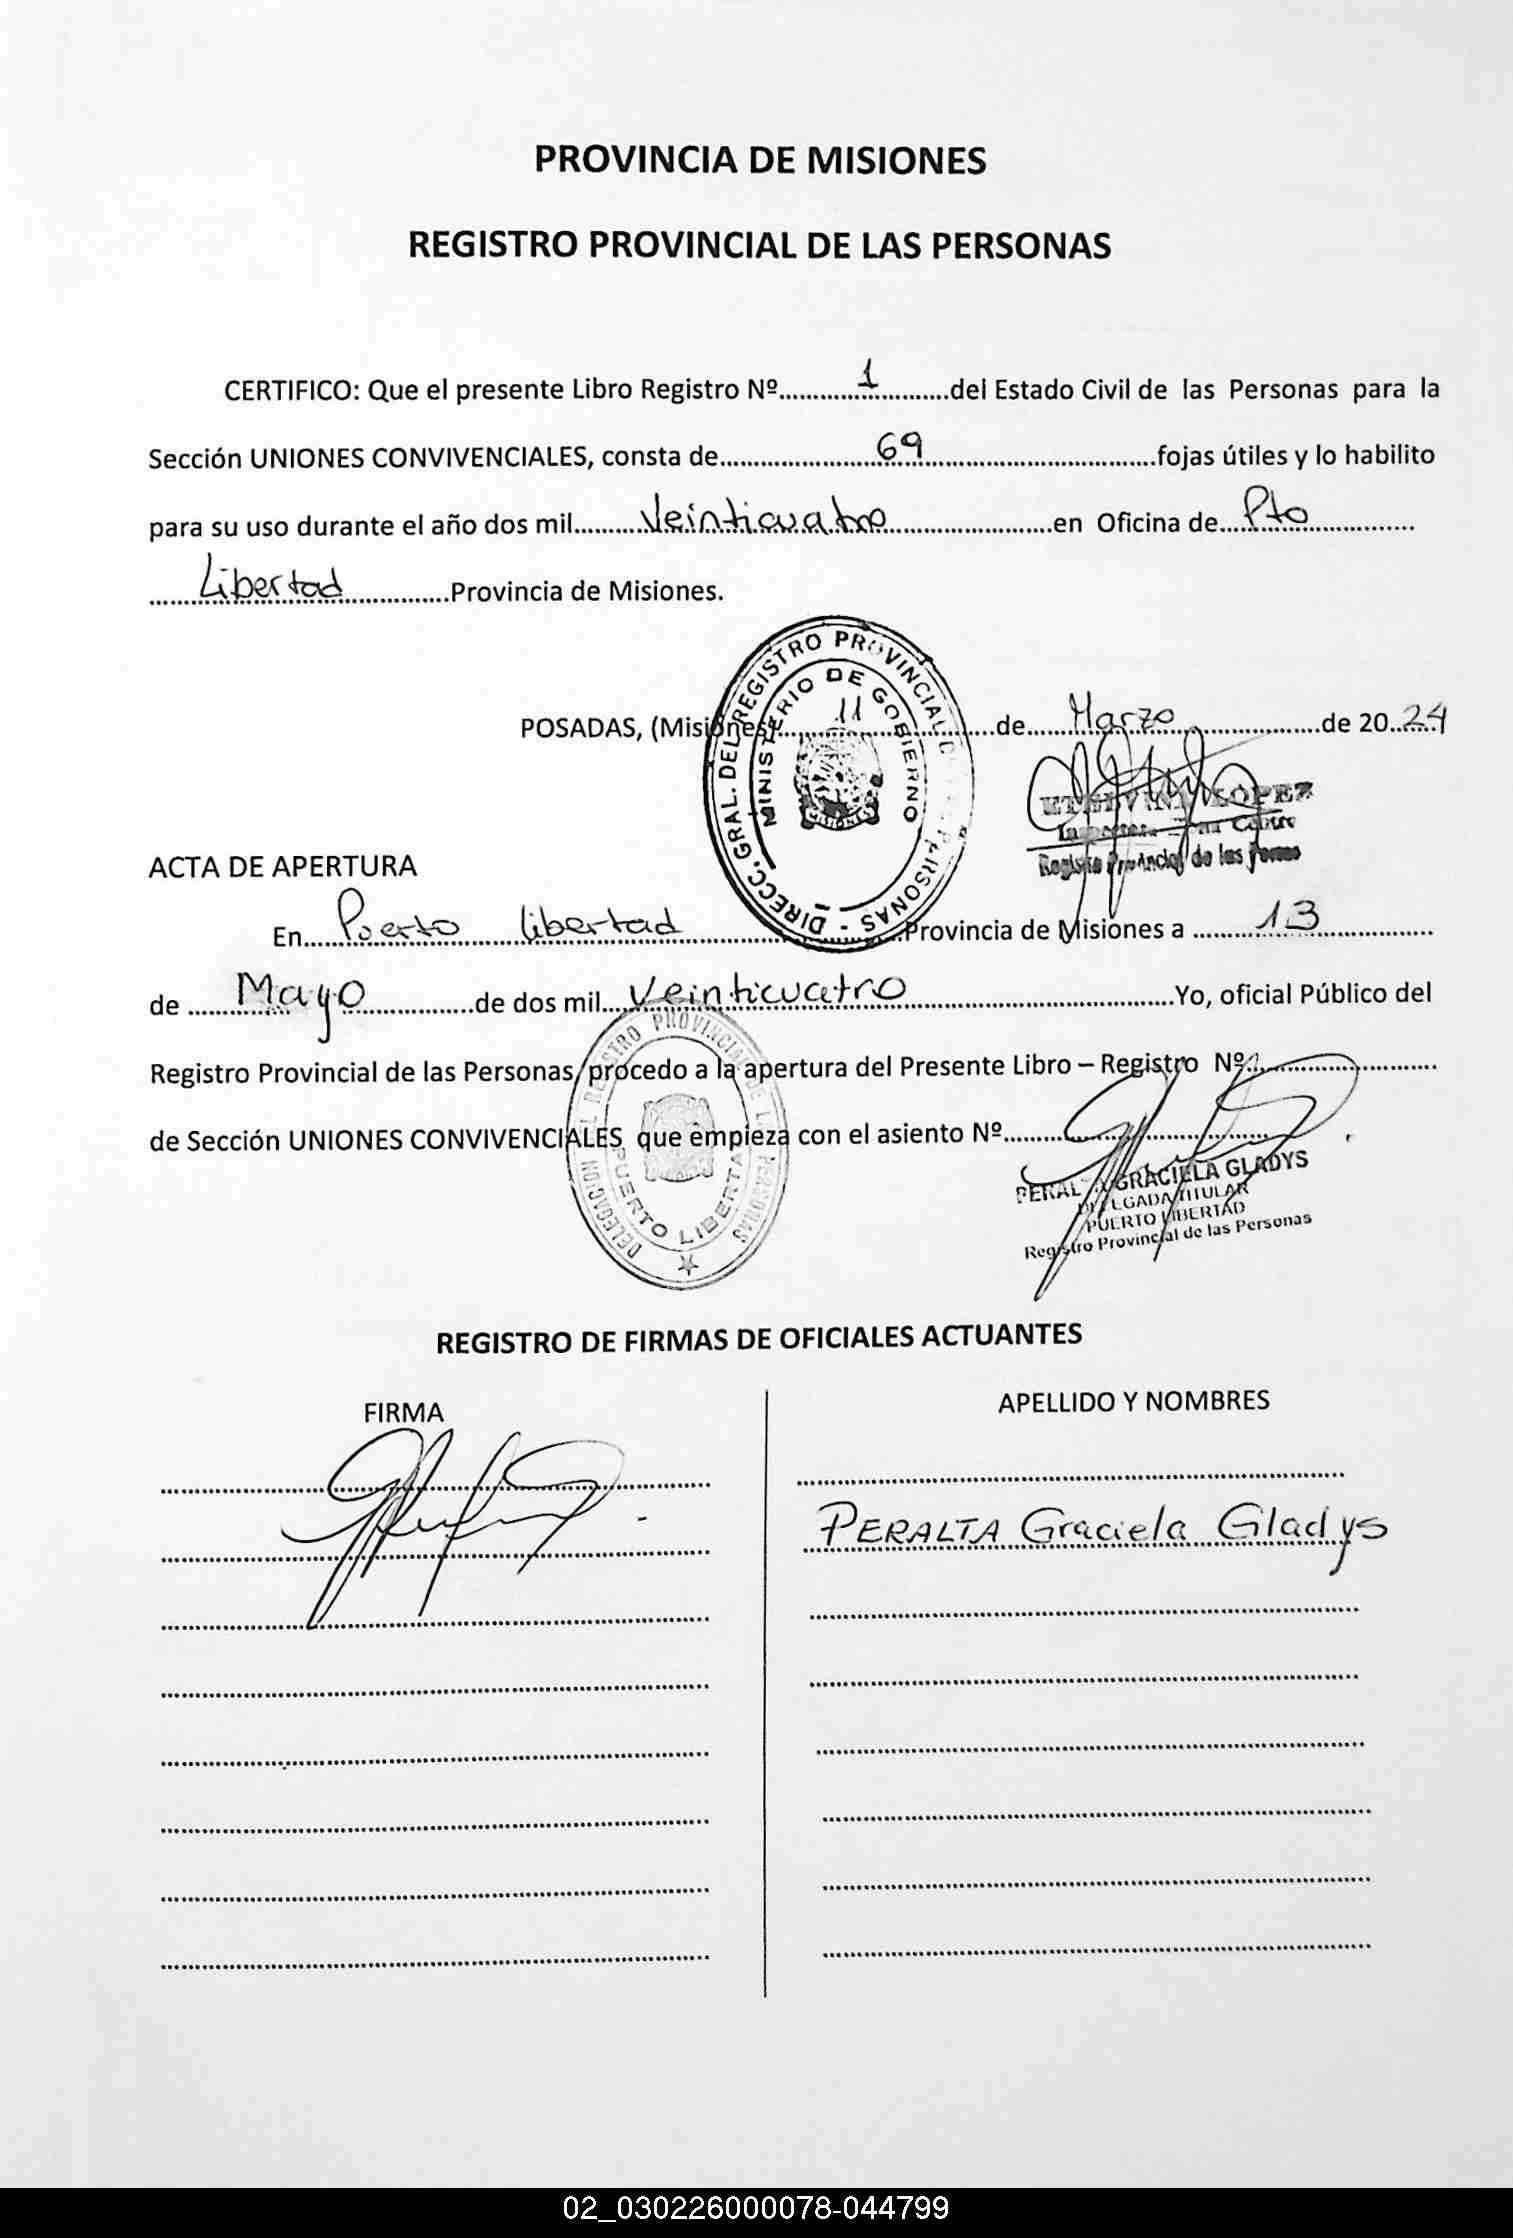 PROVINCIA DE MISIONES
REGISTRO PROVINCIAL DE LAS PERSONAS
CERTIFICO: Que el presente Libro Registro Nº 1 del Estado Civil de las Personas para la
Sección UNIONES CONVIVENCIALES, consta de 69 fojas útiles y lo habilito
para su uso durante el año dos mil Veinticuatro en Oficina de Pto
Libertad Provincia de Misiones.
DIRECC. GRAL. DEL REGISTRO PROVINCIAL DE LAS PERSONAS
MINISTERIO DE GOBIERNO
MISIONES
POSADAS, (Misiones) 11 de Marzo de 2024
LOPEZ
Registro Provincial de las Personas
ACTA DE APERTURA
En Puerto Libertad Provincia de Misiones a 13
de Mayo de dos mil Veinticuatro Yo, oficial Público del
Registro Provincial de las Personas, procedo a la apertura del Presente Libro – Registro Nº 1
de Sección UNIONES CONVIVENCIALES que empieza con el asiento Nº
DELEGACION DEL REGISTRO PROVINCIAL DE LAS PERSONAS
PUERTO LIBERTAD
PERALTA GRACIELA GLADYS
DELEGADA TITULAR
PUERTO LIBERTAD
Registro Provincial de las Personas
REGISTRO DE FIRMAS DE OFICIALES ACTUANTES
FIRMA
APELLIDO Y NOMBRES
PERALTA Graciela Gladys
02_030226000078-044799